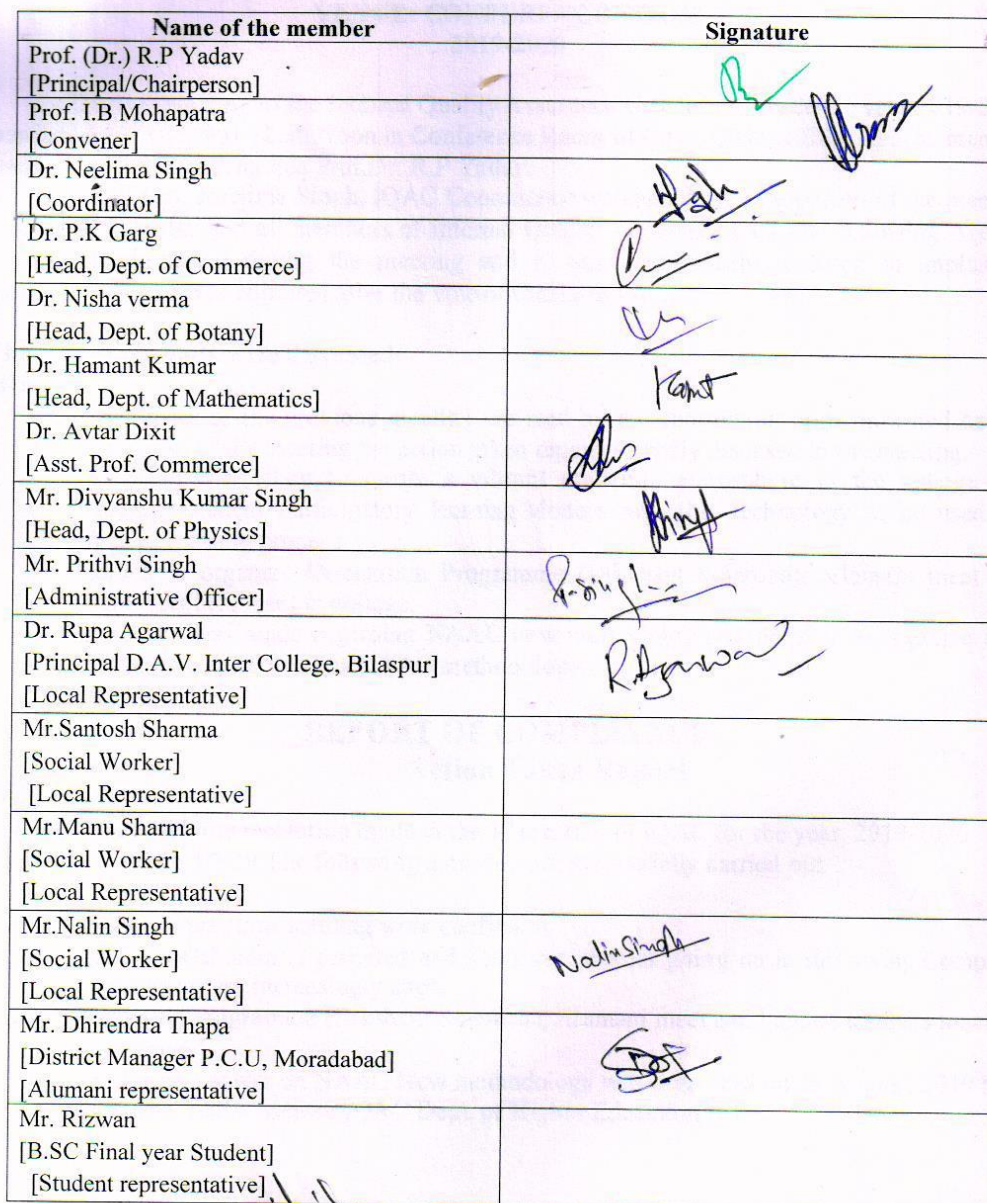 Name of the member Signature
Prof. (Dr.) R.P Yadav
[Principal/Chairperson]
Prof. I.B Mohapatra
[Convener]
Dr. Neelima Singh
[Coordinator]
Dr. P.K Garg
[Head, Dept. of Commerce]
Dr. Nisha verma
[Head, Dept. of Botany]
Dr. Hamant Kumar
[Head, Dept. of Mathematics]
Kant
Dr. Avtar Dixit
[Asst. Prof. Commerce]
Mr. Divyanshu Kumar Singh
[Head, Dept. of Physics]
Mr. Prithvi Singh
[Administrative Officer]
P. Singh
Dr. Rupa Agarwal
[Principal D.A.V. Inter College, Bilaspur]
[Local Representative]
R. Agarwal
Mr.Santosh Sharma
[Social Worker]
[Local Representative]
Mr.Manu Sharma
[Social Worker]
[Local Representative]
Mr.Nalin Singh
[Social Worker]
[Local Representative]
Nalin Singh
Mr. Dhirendra Thapa
[District Manager P.C.U, Moradabad]
[Alumani representative]
Mr. Rizwan
[B.SC Final year Student]
[Student representative]